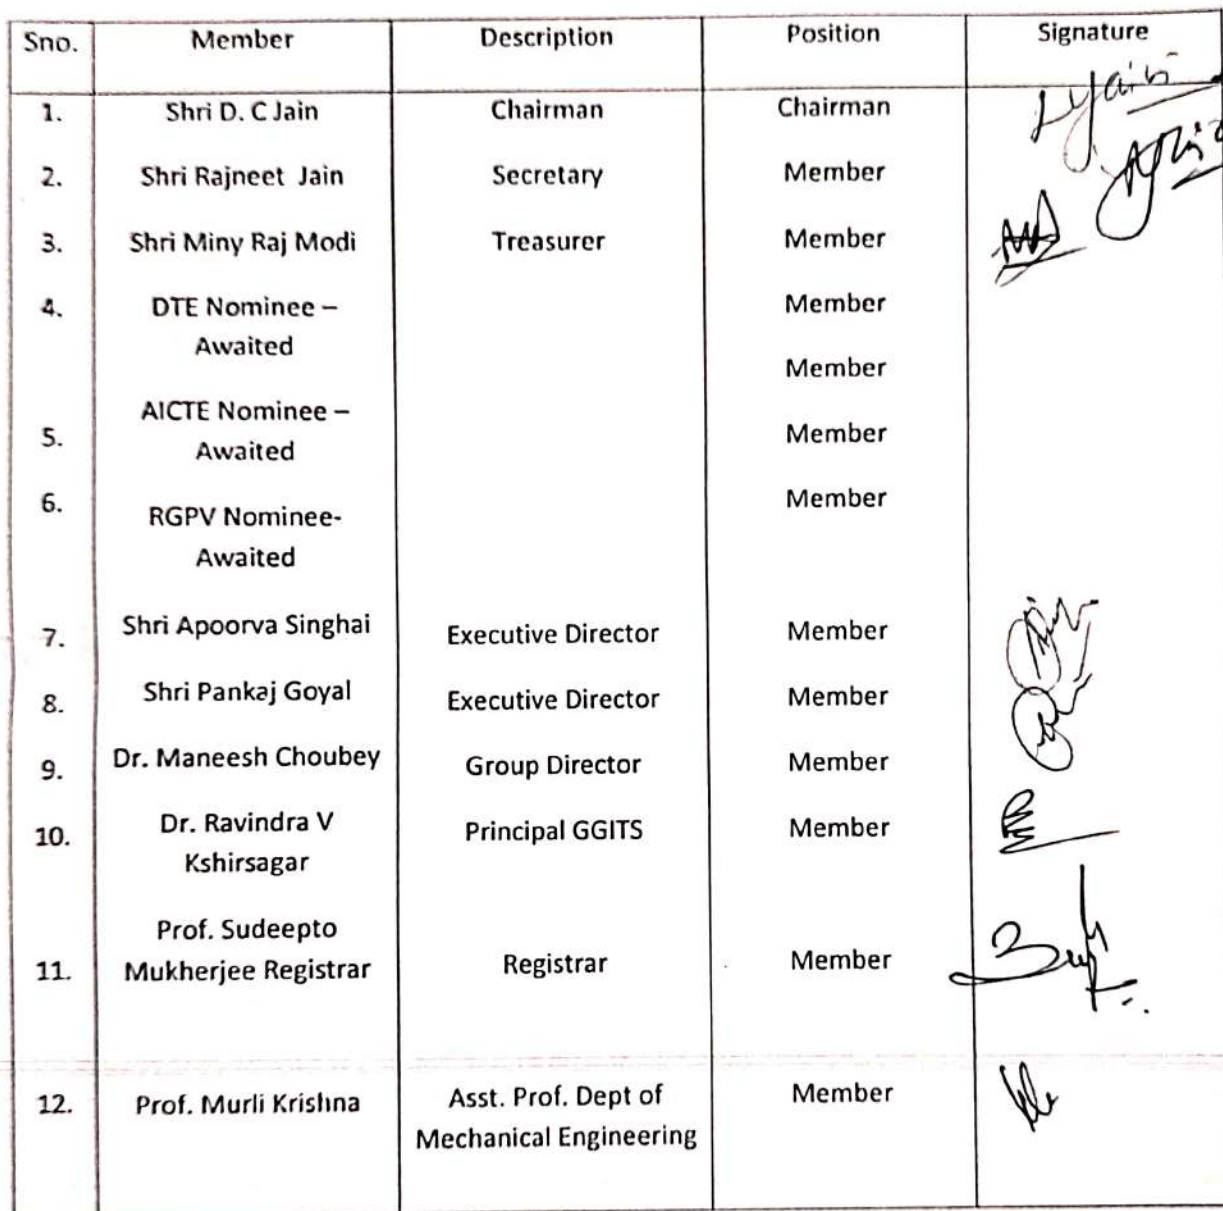 Sno. Member Description Position Signature
1. Shri D. C Jain Chairman Chairman
2. Shri Rajneet Jain Secretary Member
3. Shri Miny Raj Modi Treasurer Member
4. DTE Nominee – Member
Awaited
Member
AICTE Nominee –
5. Awaited Member
6. Member
RGPV Nominee-
Awaited
7. Shri Apoorva Singhai Executive Director Member
8. Shri Pankaj Goyal Executive Director Member
9. Dr. Maneesh Choubey Group Director Member
10. Dr. Ravindra V Principal GGITS Member
Kshirsagar
Prof. Sudeepto
11. Mukherjee Registrar Registrar Member
12. Prof. Murli Krishna Asst. Prof. Dept of Member
Mechanical Engineering